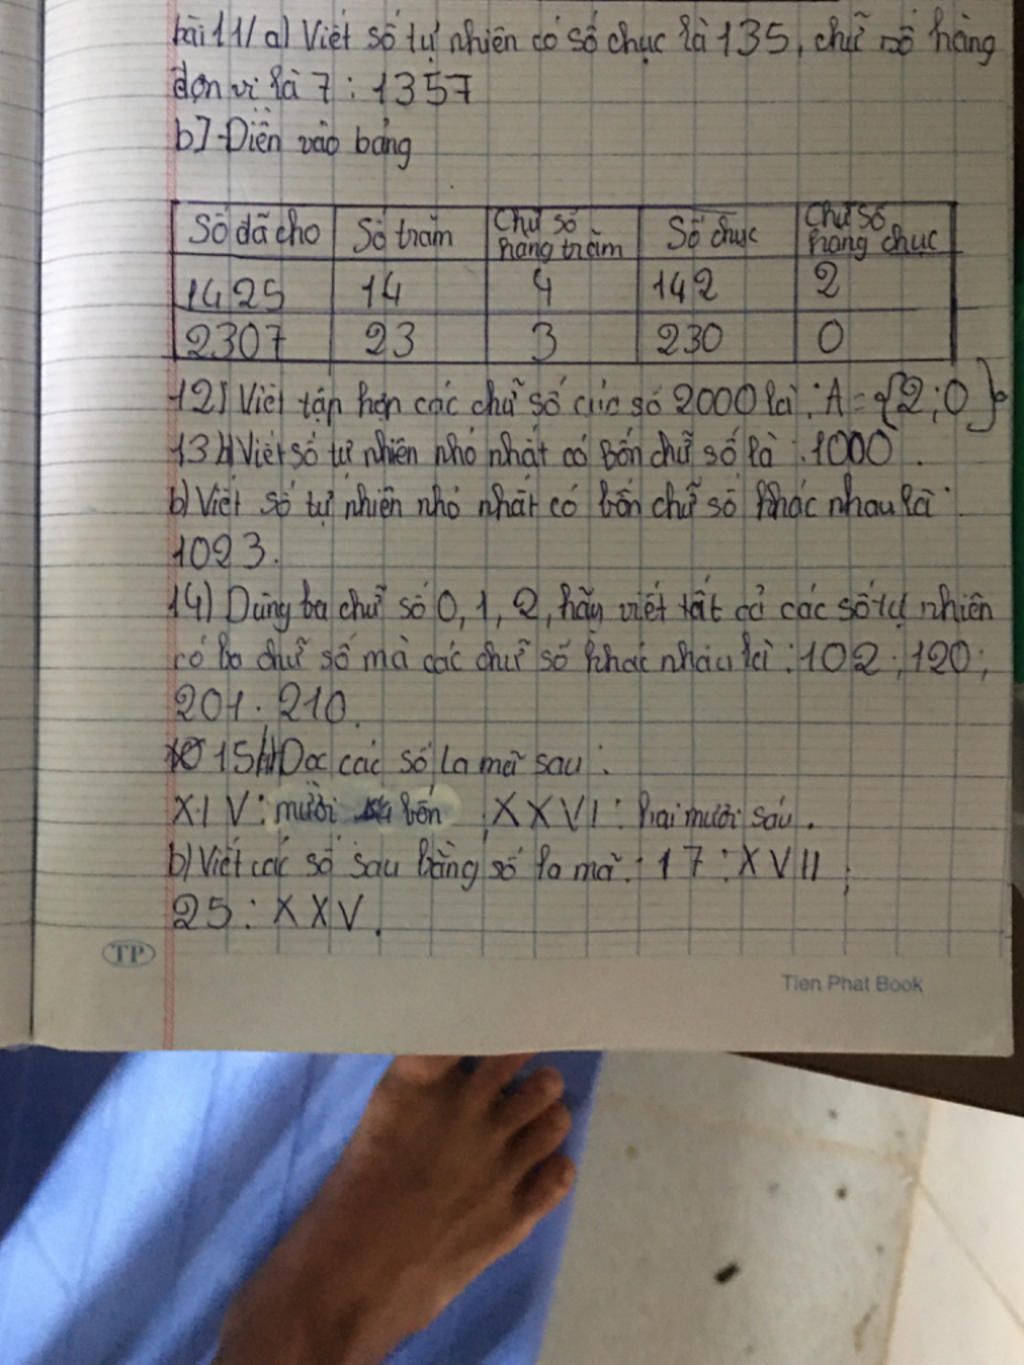 bài 11/ a) Viết số tự nhiên có số chục là 135, chữ số hàng
đơn vị là 7 : 1357
b) Điền vào bảng
Số đã cho Số trăm Chữ số hàng trăm Số chục Chữ số hàng chục
1425 14 4 142 2
2307 23 3 230 0
12) Viết tập hợp các chữ số của số 2000 là : A = {2; 0}
13) Viết số tự nhiên nhỏ nhất có bốn chữ số là : 1000.
b) Viết số tự nhiên nhỏ nhất có bốn chữ số khác nhau là :
1023.
14) Dùng ba chữ số 0, 1, 2, hãy viết tất cả các số tự nhiên
có ba chữ số mà các chữ số khác nhau là : 102 ; 120 ;
201 . 210.
15) Đọc các số La mã sau :
XIV : mười bốn ; XXVI : hai mươi sáu .
b) Viết các số sau bằng số la mã : 17 : XVII ;
25 : XXV .
TP
Tien Phat Book